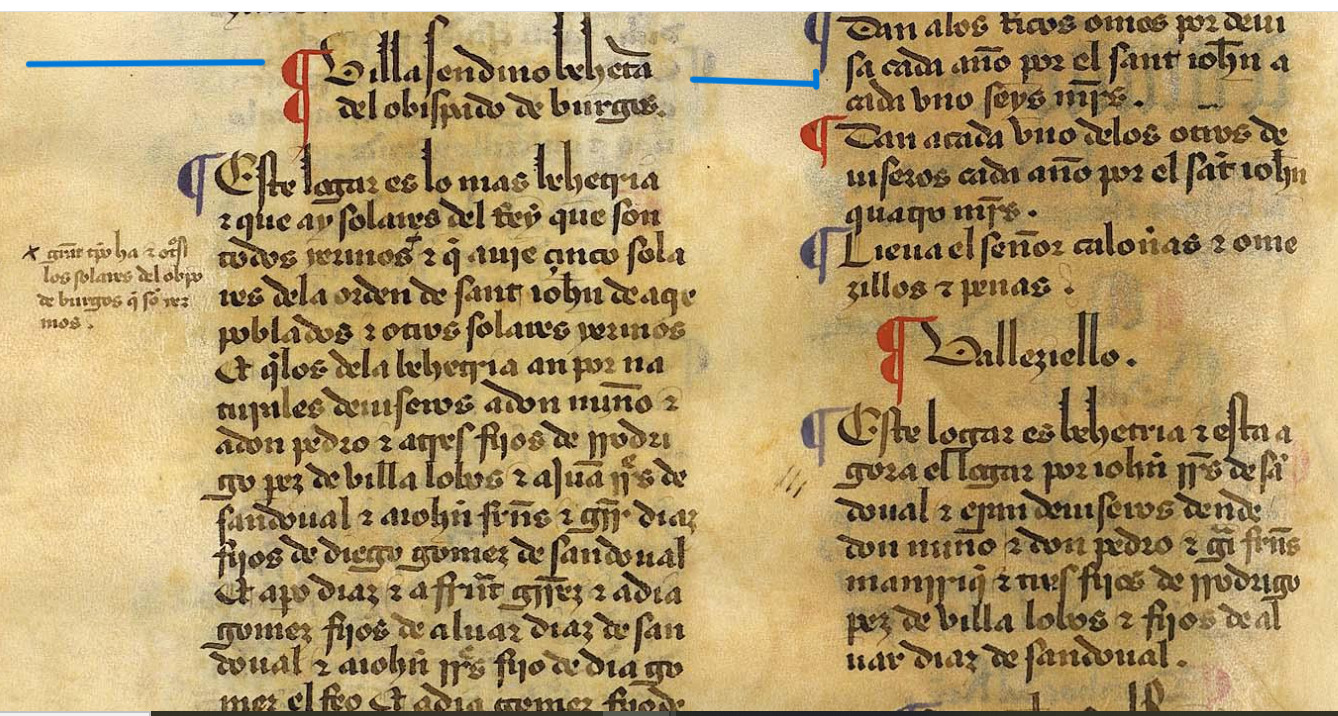 ¶ Villa sendino behetã
del obispado de burgos.
¶ Este logar es lo mas behetria
⁊ que ay solares del Rey que son
todos yermos ⁊ q̃ auie çinco sola
res dela orden de sant iohñ de acre
poblados ⁊ otros solares yermos
Et q̃los dela behetria an por na
turales deuiseros adon nuño ⁊
adon pedro ⁊ atres fijos de rrodri
go perez de villa lobos ⁊ a Juã rrs de
sandoual ⁊ aiohñ frñs ⁊ grr̃ diaz
fijos de diego gomez de sandoual
Et apo diaz ⁊ a ffrũt grrez ⁊ adia
gomez fijos de aluar diaz de san
doual ⁊ aiohñ rrs fijo de dia go
mez el feo Et adia gomez fijo de
x grãt tp̃o ha ⁊ otsi
los solares del obpo
de burgos q̃ sõ yer
mos.
¶ Dan alos Ricos omes por deui
sa cada año por el sant iohñ a
cada vno seys mrs.
¶ Dan acada vno delos otros de
uiseros cada año por el sãt iohñ
quatro mrs.
¶ Lieua el señor caloñas ⁊ ome
zillos ⁊ penas.
¶ Valleziello.
¶ Este logar es behetria ⁊ esta a
gora el logar por iohñ rrs de sã
doual ⁊ deuiseros dende
don nuño ⁊ don pedro ⁊ gĩ frñs
manrriq̃ ⁊ tres fijos de rrodrigo
pez de villa lobos ⁊ fijos de al
uar diaz de sandoual.